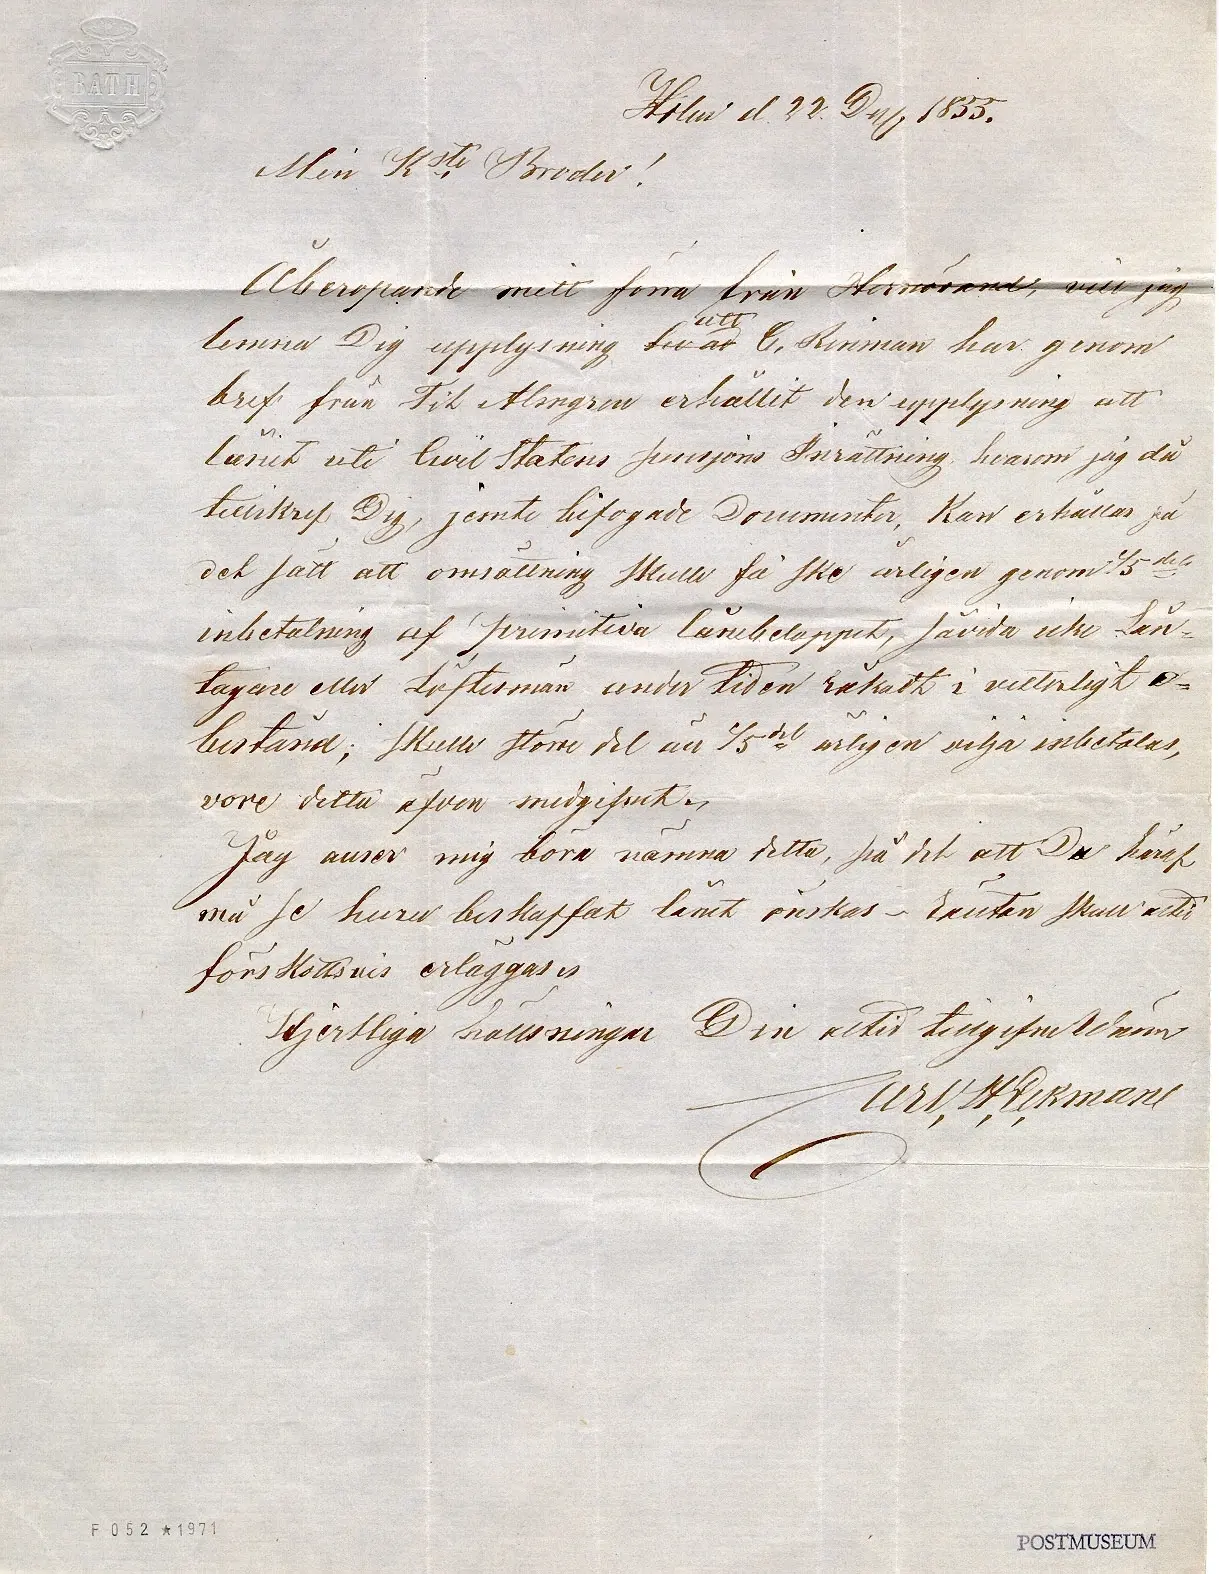 BATH
Holm d. 22. Dec. 1855.
Min K.ste Broder!
Åberopande mitt förra från Hernösand, vill jag
lemna Dig upplysning att C. Rinman har genom
bref från Almgren erhållit den upplysning att
lånet uti Civil Statens pensjons Inrättning hvarom jag då
tillskref Dig, jemte bifogade Documenter, kan erhållas på
det sätt att omsättning skulle få ske årligen genom 1/5 dels
inbetalning af primitiva lånebeloppet, såvida icke Lån-
tagare eller Löftesmän under tiden råkadt i vitterligt o-
bestånd; skulle större del än 1/5 del årligen vilja inbetalas,
vore detta äfven medgifvet.
Jag anser mig böra nämna detta, på det att Du häraf
må se huru beskaffat lånet önskas – Räntan skall alltid
förskottsvis erläggas
Hjertliga hälsningar Din alltid tillgifne Wän
Carl. H. Ekmans
F 052 ★ 1971
POSTMUSEUM